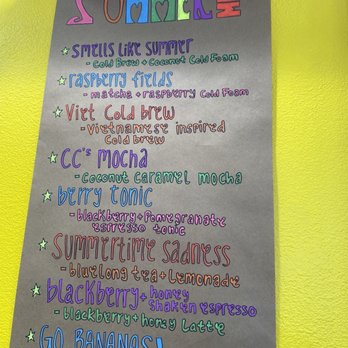 SUMMER
SMELLS LIKE SUMMER
- COLD BREW + COCONUT COLD FOAM
raspberry fields
- matcha + raspberry Cold Foam
Viet Cold brew
- Vietnamese inspired
Cold brew
CC's mocha
- Coconut Caramel mocha
berry tonic
- blackberry + pomegranate
espresso tonic
SUMMERTIME SADNESS
- bluelong tea + Lemonade
blackberry + honey
shaken espresso
- blackberry + honey Latte
GO BANANAS!